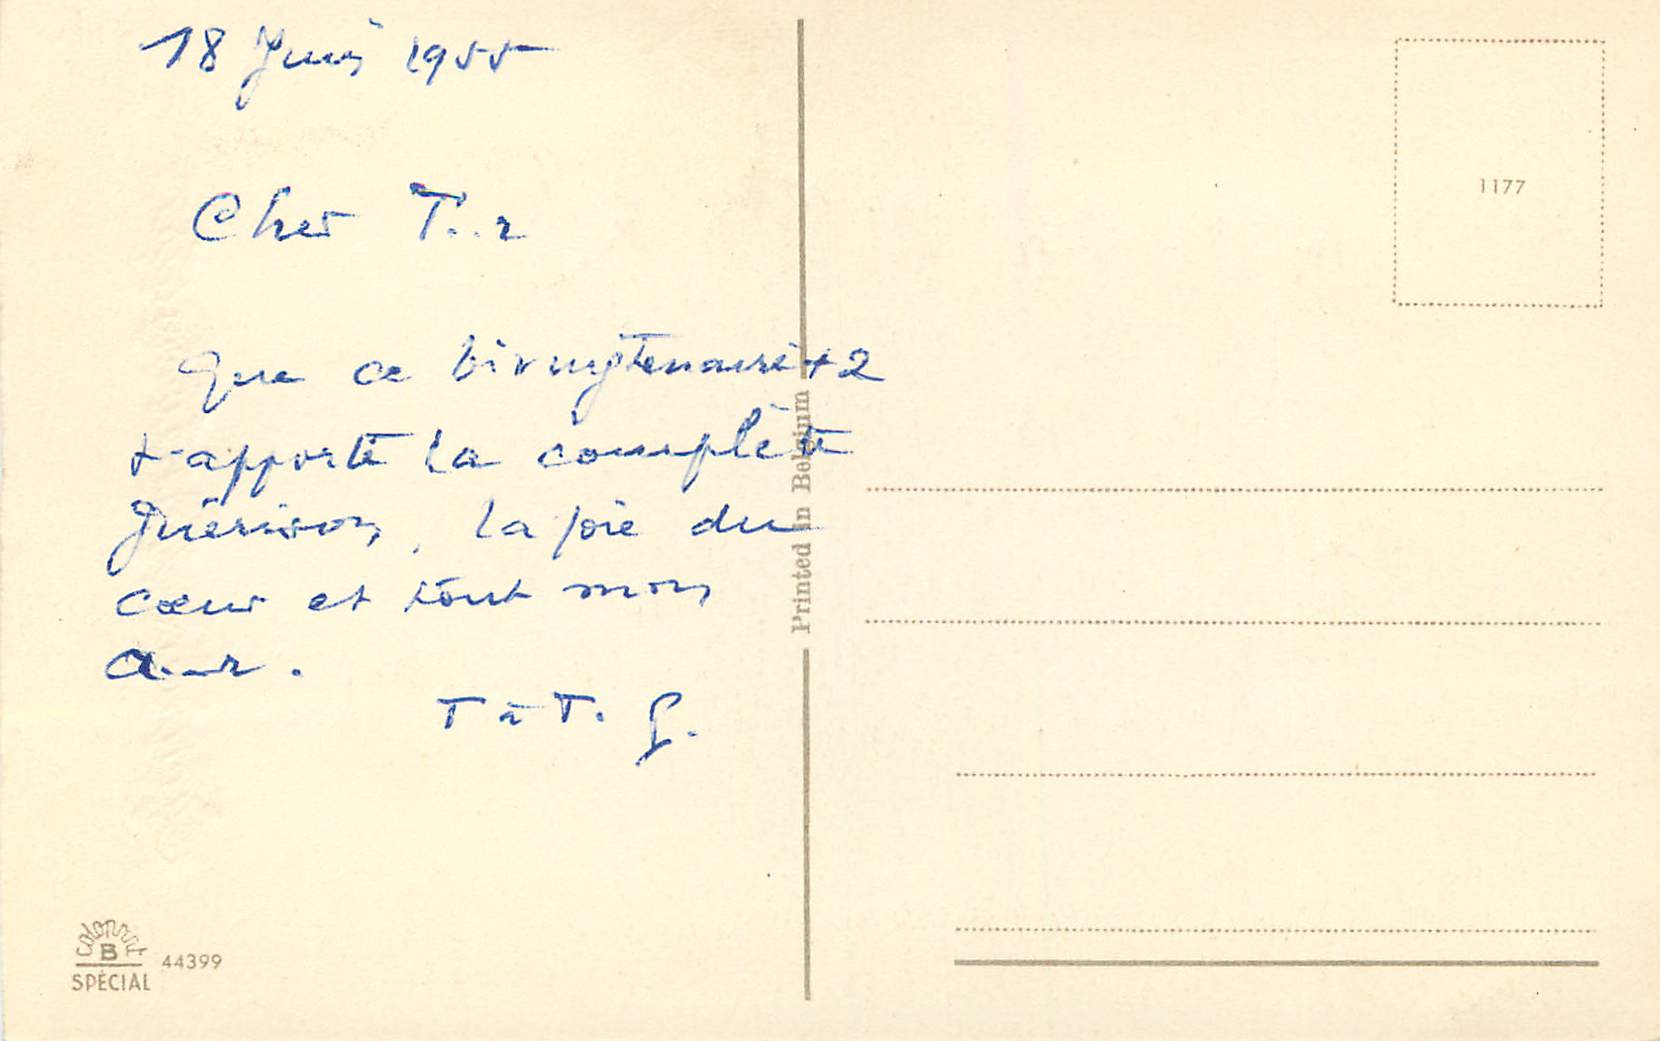 18 Juin 1955
Cher T..r
Que ce bivingtenaire+2
t'apporte la complète
guérison, la joie du
cœur et tout mon
a..r.
T à T. G.
1177
Printed in Belgium
colorprint
B
SPÉCIAL
44399